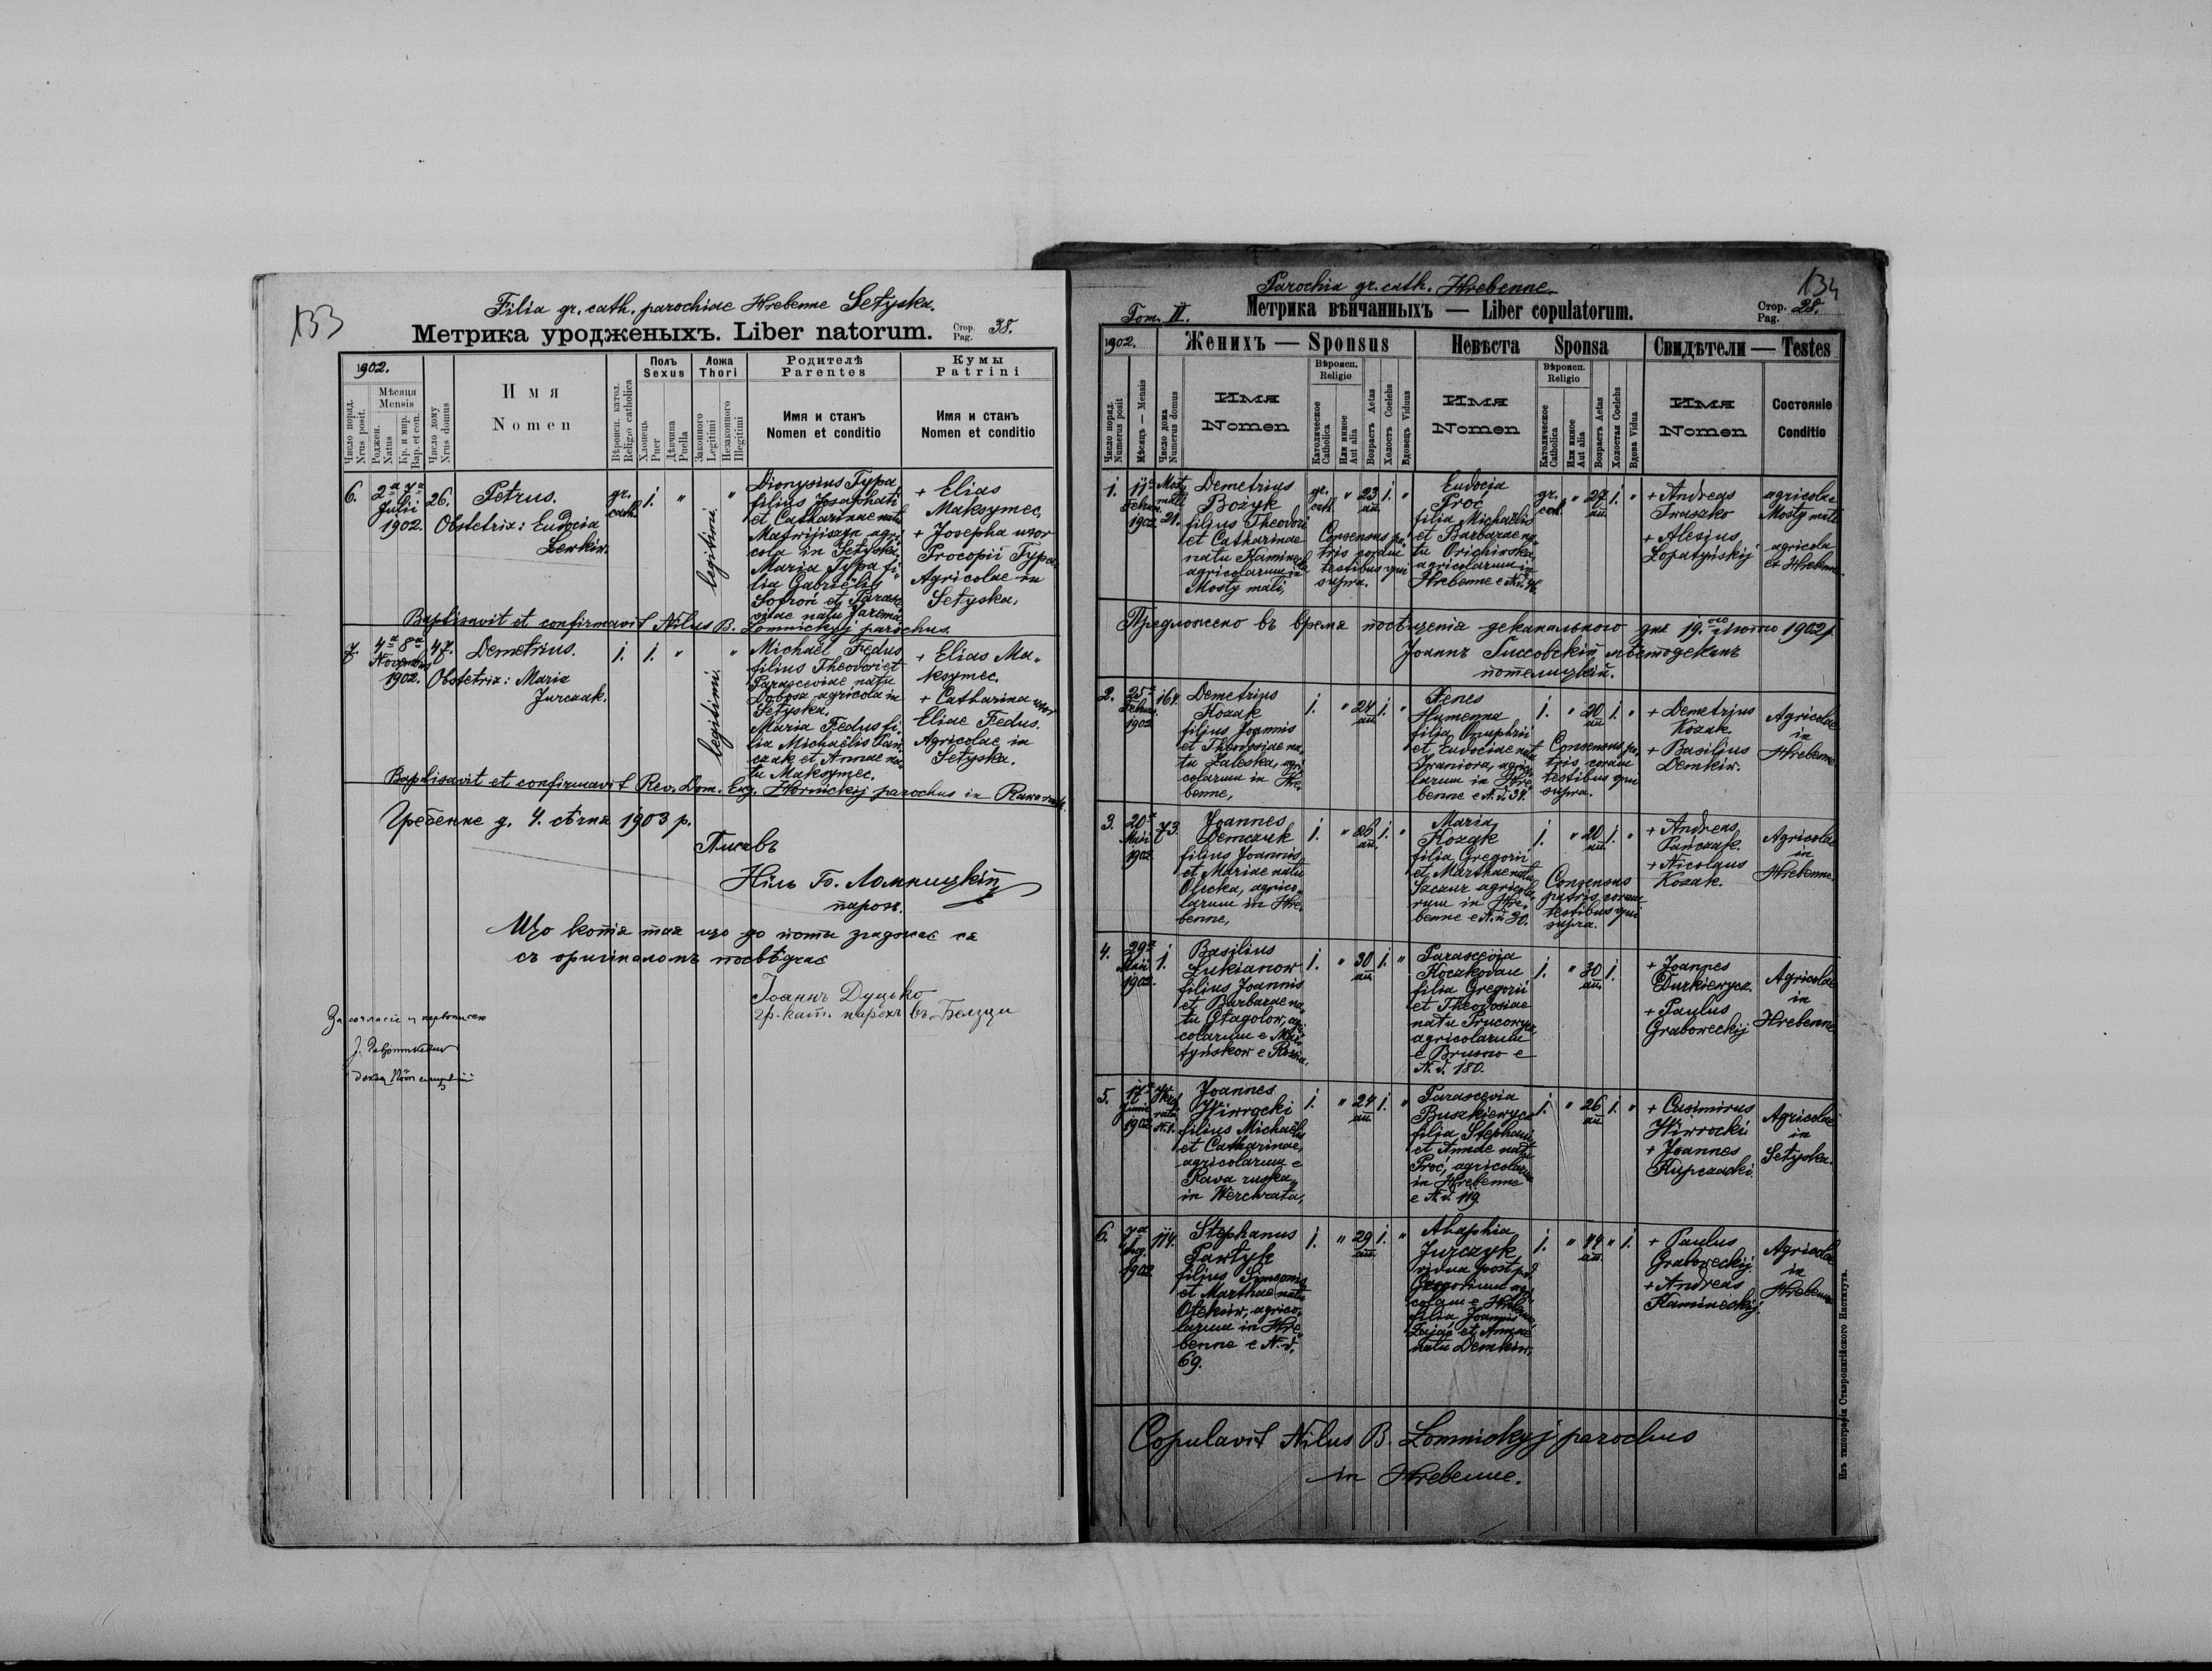 133
Filia gr. cath. parochiae Hrebenne Sełyska.
Метрика уродженыхъ. Liber natorum.
Стор. Pag. 38.
1902.
Число поряд. Nrus posit.
Мѣсяця Mensis
Рожден. Natus
Кр. и мир. Bap. et con.
Число дому Nrus domus
Имя
Nomen
Вѣроисп. катол. Religio catholica
Полъ Sexus
Хлопець Puer
Дѣвчина Puella
Ложа Thori
Законного Legitimi
Незаконного Illegitimi
Родителѣ
Parentes
Имя и станъ
Nomen et conditio
Кумы
Patrini
Имя и станъ
Nomen et conditio
6.
2ª 7ª
Julii
1902.
26.
Petrus.
Obstetrix: Eudocia
Lewkiw.
gr. cath.
1.
"
legitimi.
"
Dionysius Typa,
filius Josaphati
et Catharinae natu
Matwijiszyn agri-
cola in Sełyska.
Maria Typa fi-
lia Gabriëlis
Sofroń et Parasce-
viae natu Jarema.
+ Elias
Maksymec.
+ Josepha uxor
Procopii Typa.
Agricolae in
Sełyska.
Baptisavit et confirmavit Nilus B. Łomnickyj parochus.
7.
4ª 8ª
Novembris
1902.
47.
Demetrius.
Obstetrix: Maria
Jurczak.
1.
1.
"
legitimi.
"
Michaël Fedus
filius Theodori et
Parasceviae natu
Dobosz agricola in
Sełyska.
Maria Fedus fi-
lia Michaëlis Pań-
czak et Annae na-
tu Maksymec.
+ Elias Ma-
ksymec.
+ Catharina uxor
Eliae Fedus.
Agricolae in
Sełyska.
Baptisavit et confirmavit Rev. Dom. Eug. Hornickij parochus in Rawa
Гребенне д. 4. сѣчня 1903 р.
Писавъ
Нілъ Б. Ломницкій
парох.
Що копія тая що до йоты згаджає ся
съ оригіналомъ посвѣдчає
Іоаннъ Дуцько
гр.-кат. парохъ въ Белзци
134
Parochia gr. cath. Hrebenne.
Tom. II.
Метрика вѣнчанныхъ — Liber copulatorum.
Стор. Pag. 28.
1902.
Число поряд. Numerus posit
Мѣсяцъ — Mensis
Число дома Numerus domus
Женихъ — Sponsus
Имя
Nomen
Вѣроисп. Religio
Католическое Catholica
Или иное Aut alia
Возрастъ Aetas
Холостъ Coelebs
Вдовецъ Viduus
Невѣста Sponsa
Имя
Nomen
Вѣроисп. Religio
Католическое Catholica
Или иное Aut alia
Возрастъ Aetas
Холостая Coelebs
Вдова Vidua
Свидѣтели — Testes
Имя
Nomen
Состояніе
Conditio
1.
17ª
Februar.
1902.
Mosty
mali
21.
Demetrius
Bożyk
filius Theodori
et Catharinae
natu Kaminecka
agricolarum in
Mosty mali,
gr. cath.
"
23 an.
1.
"
Consensus pa-
tris coram
testibus qui
supra.
Eudocia
Proć
filia Michaëlis
et Barbarae na-
tu Orichiwska,
agricolarum in
Hrebenne e N. d. 46.
gr. cath.
"
27 an.
1.
"
+ Andreas
Iwaszko
+ Alexius
Łopatyńskij
agricolae
Mosty mali
agricola
et Hrebenne.
Предложено въ время посѣщенія деканального дня 19.ого Лютого 1902 р.
2.
25ª
Februar.
1902.
164.
Demetrius
Kozak
filius Joannis
et Theodosiae na-
tu Zaleska, agri-
colarum in Hre-
benne,
1.
"
24 an.
1.
"
Xenes
Humenna
filia Onuphrii
et Eudociae natu
agrico-
larum in Hre-
benne e N. d. 34.
1.
"
20 an.
1.
"
Consensus pa-
tris coram
testibus qui
supra.
+ Demetrius
Kozak.
+ Basilius
Demkiw.
Agricolae
in
Hrebenne
3.
20ª
Maii
1902.
73.
Joannes
Demczuk
filius Joannis
et Mariae natu
agrico-
larum in Hre-
benne,
1.
"
26 an.
1.
"
Maria
Kozak
filia Gregorii
et Marthae natu
agricola-
rum in Hre-
benne e N. d. 30.
1.
"
20 an.
1.
"
Consensus
patris coram
testibus qui
supra.
+ Andreas
Pańczak.
+ Nicolaus
Kozak.
Agricolae
in
Hrebenne.
4.
29ª
Maii
1902.
1.
Basilius
Łukianow
filius Joannis
et Barbarae na-
tu agri-
colarum e
1.
"
30 an.
1.
"
Parascevia
Koczkodan
filia Gregorii
et Theodosiae
natu
agricolarum
e Brusno e
N. d. 180.
1.
"
30 an.
1.
+ Joannes
Durkiewycz
+ Paulus
Graboweckij
Agricolae
in
Hrebenne
5.
17ª
Junii
1902.
Wer-
rata
N. 1.
Joannes
Wirrocki
filius Michaëlis
et Catharinae,
agricolarum e
Rava ruska,
in Werchrata,
1.
"
24 an.
1.
"
Parascevia
Buszkiewycz
filia Stephani
et Annae natu
Proć, agricolarum
in Hrebenne
e N. d. 119.
1.
"
26 an.
1.
"
+ Casimirus
Wirrocki
+ Joannes
Kupczacki.
Agricolae
in
Sełyska.
6.
7ª
Aug.
1902
114.
Stephanus
Pawłyk
filius Symeonis
et Marthae natu
agrico-
larum in Hre-
benne e N. d.
69.
1.
"
29 an.
1.
"
Ahaphia
Jurczyk
vidua post p. d.
Gregorium agri-
colam e Hrebenne,
filia Joannis
Zając et Annae
natu Demkiw.
1.
"
44 an.
"
1.
+ Paulus
Graboweckij
+ Andreas
Kamineckij.
Agricolae
in
Hrebenne
Copulavit Nilus B. Łomnickyj parochus
in Hrebenne.
Изъ типографіи Ставропигійского Института.